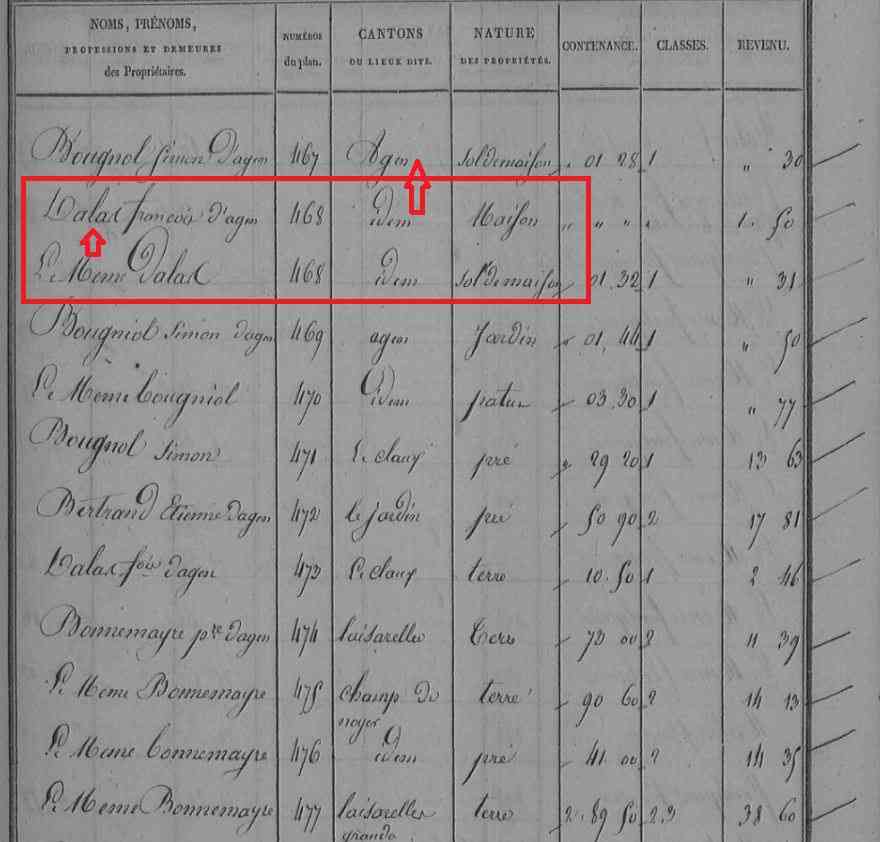 NOMS, PRÉNOMS, PROFESSIONS ET DEMEURES des Propriétaires. NUMÉROS du plan. CANTONS OU LIEUX DITS. NATURE DES PROPRIÉTÉS. CONTENANCE. CLASSES. REVENU.
Bougnol Simon d'agen 467 Agen sol de maison " 01 28 1 " 30
Dalax francois d'agen 468 idem Maison " " " " 1. 50
Le Meme Dalax 468 idem sol de maison 01 32 1 " 31
Bougniol Simon dagen 469 agen Jardin 01, 44 1 " 50
Le Meme bougniol 470 idem patur 03 30 1 " 77
Bougnol Simon 471 Le claux pré " 29 20 1 13 63
Bertrand Etienne dagen 472 le jardin pré 50 90 2 17 81
Dalax fois dagen 473 Le claux terre 10. 50 1 2 46
Bonnemayre pre dagen 474 laisarelles 73 00 " 39
Le Meme Bonnemayre 475 champ du noyer terre 90 60 2 14 13
Le Meme bonnemayre 476 idem pré 41 00 2 14 35
Le Meme Bonnemayre 477 laisarelles grande terre 2. 89 50 2.3 38 60